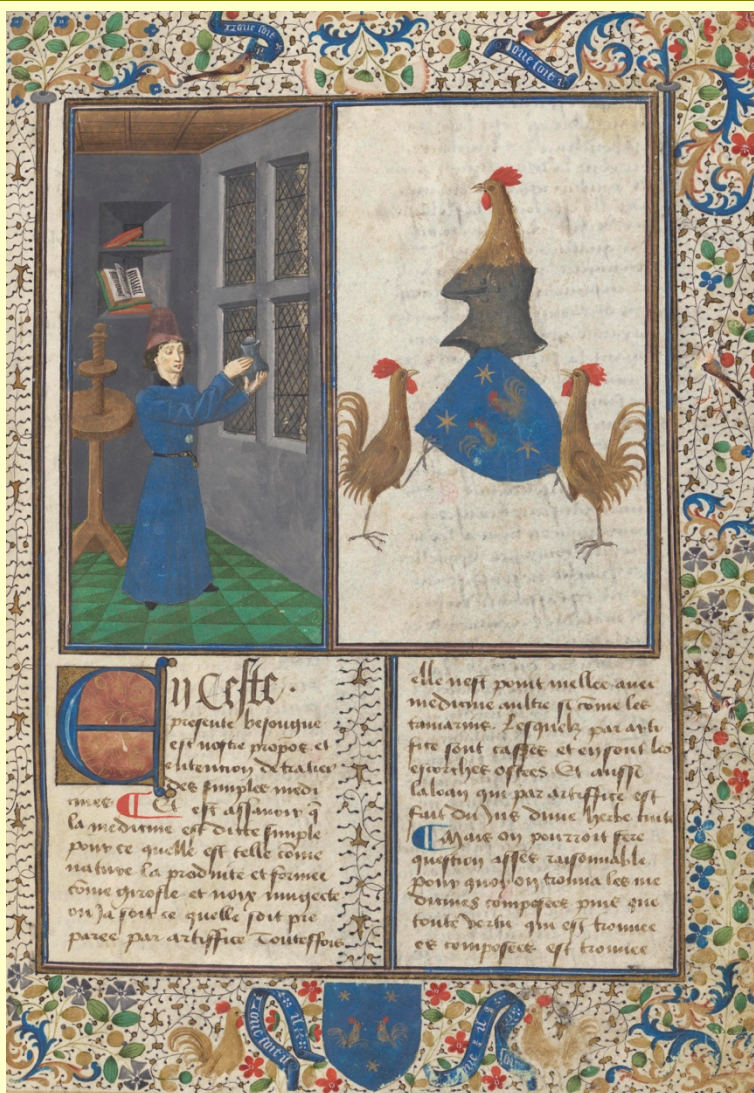 En Ceste
presente besongne
est nostre propos et
entention de traitier
des simples medi
cines Et est assavoir q̄
la medicine est ditte simple
pour ce quelle est telle cōme
nature la produite et formee
cōme girofle et noix mugecte
ou ja soit ce quelle soit pre
paree par artiffice Touteffois
elle nest point mellee avec
medicine aultre si come les
tamarins. Lesquelz par arti
fice sont cassés et en sont les
escorches ostees Et aussi
laloen qui par artiffice est
fait du jus dune herbe cuite
Mais on pourroit fere
question assés raisonnable
pour quoy on trouva les me
dicines composees puis que
toute vertu qui est trouvee
es composees est trouvee